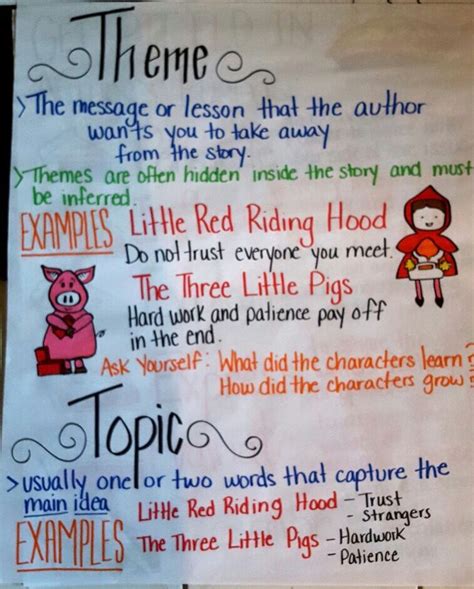 Theme
>The message or lesson that the author
wants you to take away
from the story.
>Themes are often hidden inside the story and must
be inferred.
EXAMPLES Little Red Riding Hood
Do not trust everyone you meet.
The Three Little Pigs
Hard work and patience pay off
in the end.
Ask Yourself: What did the characters learn?
How did the characters grow?
Topic
>usually one or two words that capture the
main idea
EXAMPLES
Little Red Riding Hood - Trust
- Strangers
The Three Little Pigs - Hardwork
- Patience